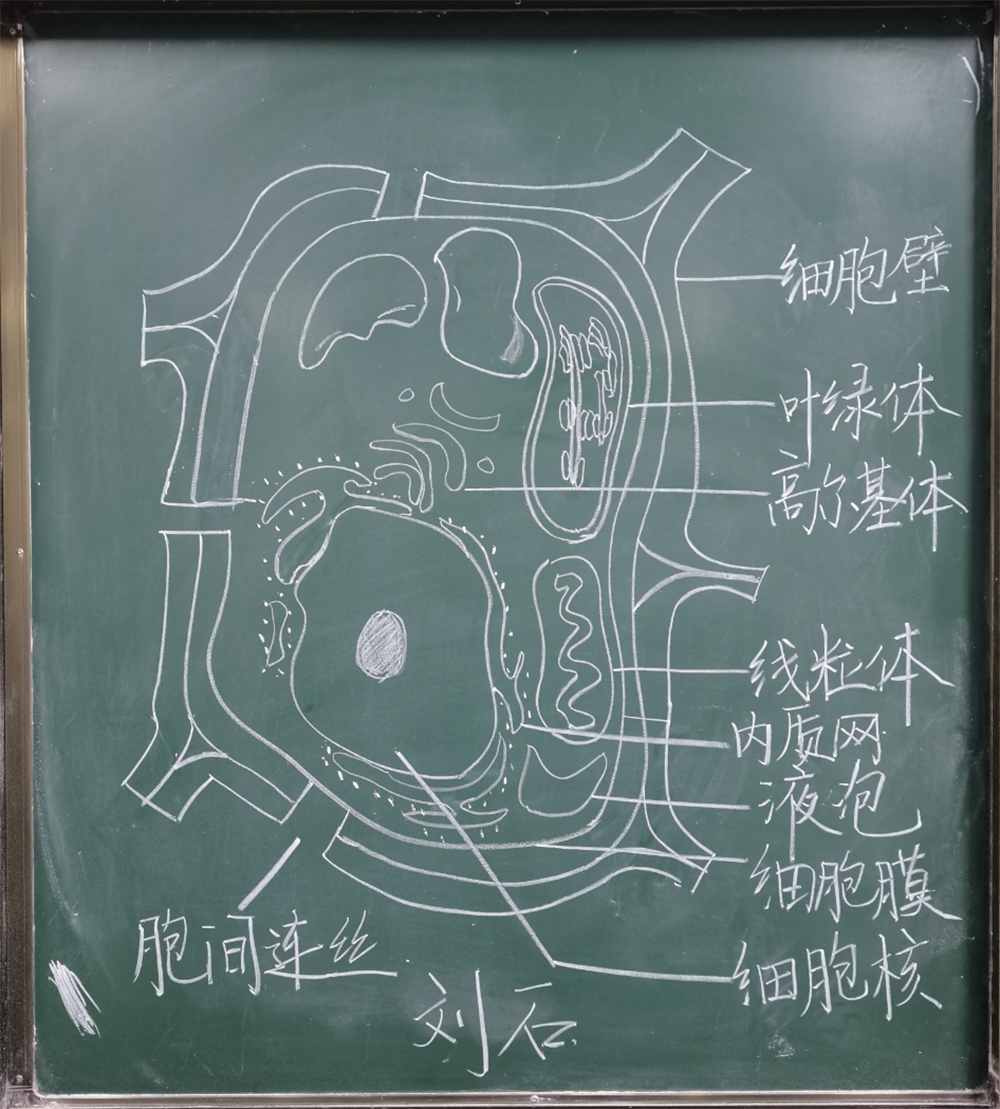 细胞壁
叶绿体
高尔基体
线粒体
内质网
液泡
细胞膜
胞间连丝
细胞核
刘石